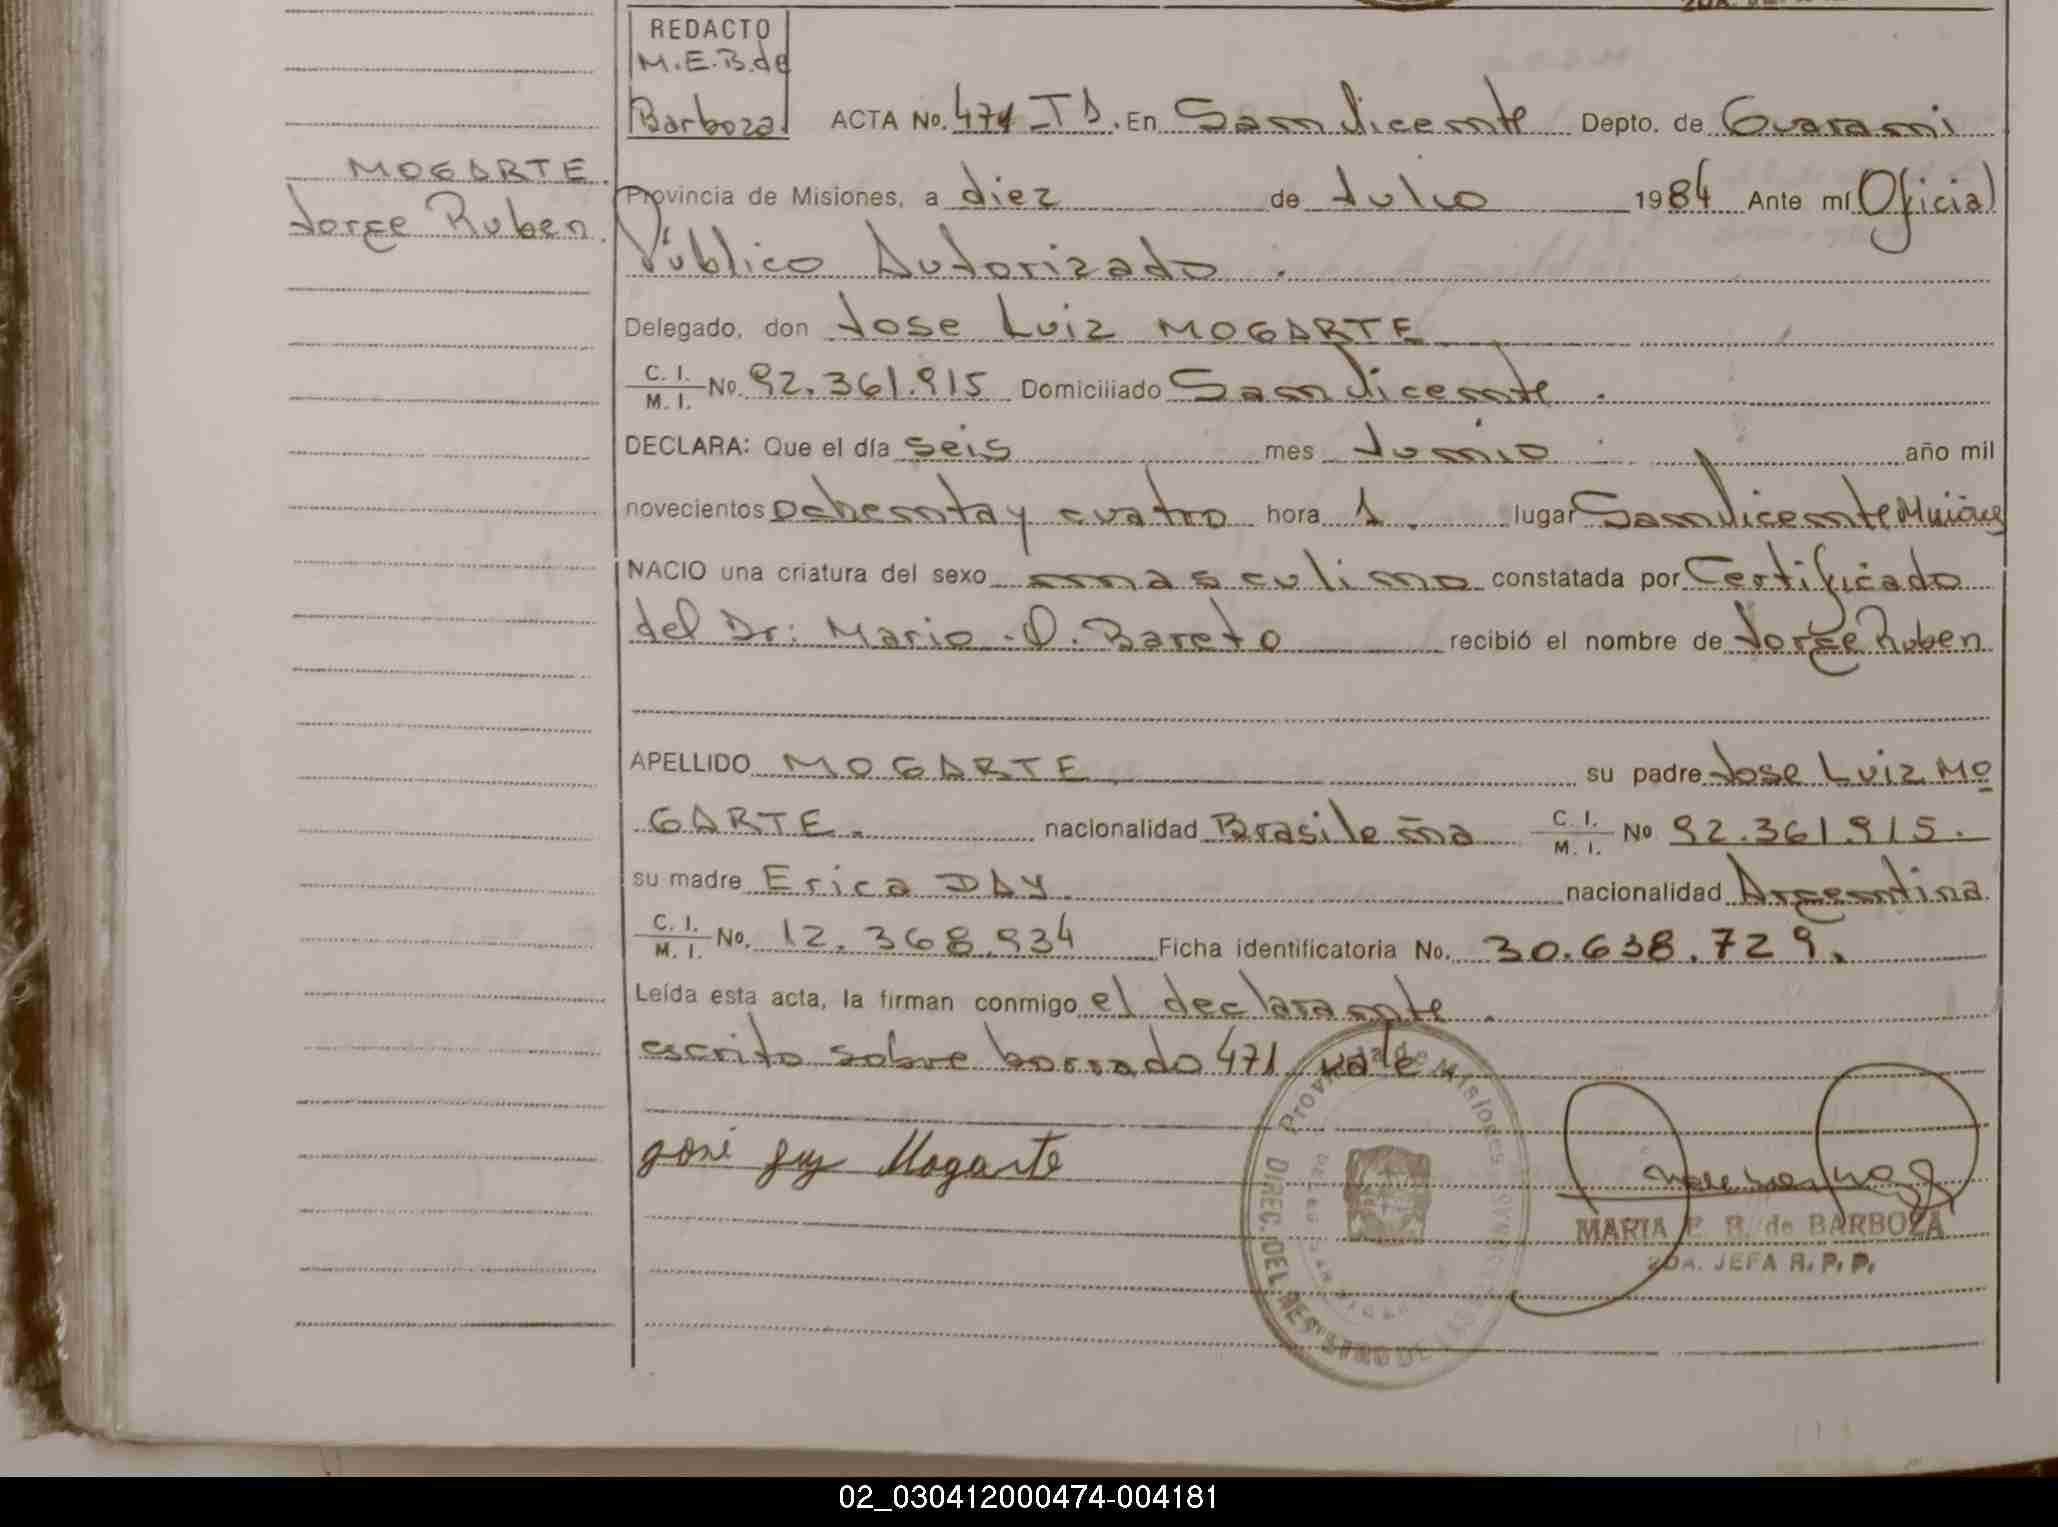 REDACTO
M.E.B.de
Barboza
ACTA No. 471 TD. En San Vicente Depto. de Guarani
MOGARTE.
Jorge Ruben.
Provincia de Misiones, a diez de Julio 1984 Ante mí Oficial
Público Autorizado.
Delegado, don Jose Luiz MOGARTE
C. I.
M. I. No. 92.361.915 Domiciliado San Vicente.
DECLARA: Que el día seis mes Junio año mil
novecientos ochenta y cuatro hora 1. lugar San Vicente Mnes
NACIO una criatura del sexo masculino constatada por Certificado
del Dr: Mario O. Bareto recibió el nombre de Jorge Ruben
APELLIDO MOGARTE su padre Jose Luiz MO
GARTE. nacionalidad Brasileña C. I.
M. I. No 92.361.915.
su madre Erica DAY nacionalidad Argentina.
C. I.
M. I. No. 12.368.934 Ficha identificatoria No. 30.638.729.
Leída esta acta, la firman conmigo el declarante.
escrito sobre borrado 471 vale
José Luiz Mogarte
Provincia de Misiones
DIREC. DEL REGISTRO DE LAS PERSONAS
MARIA E. B. de BARBOZA
2DA. JEFA R. P. P.
02_030412000474-004181